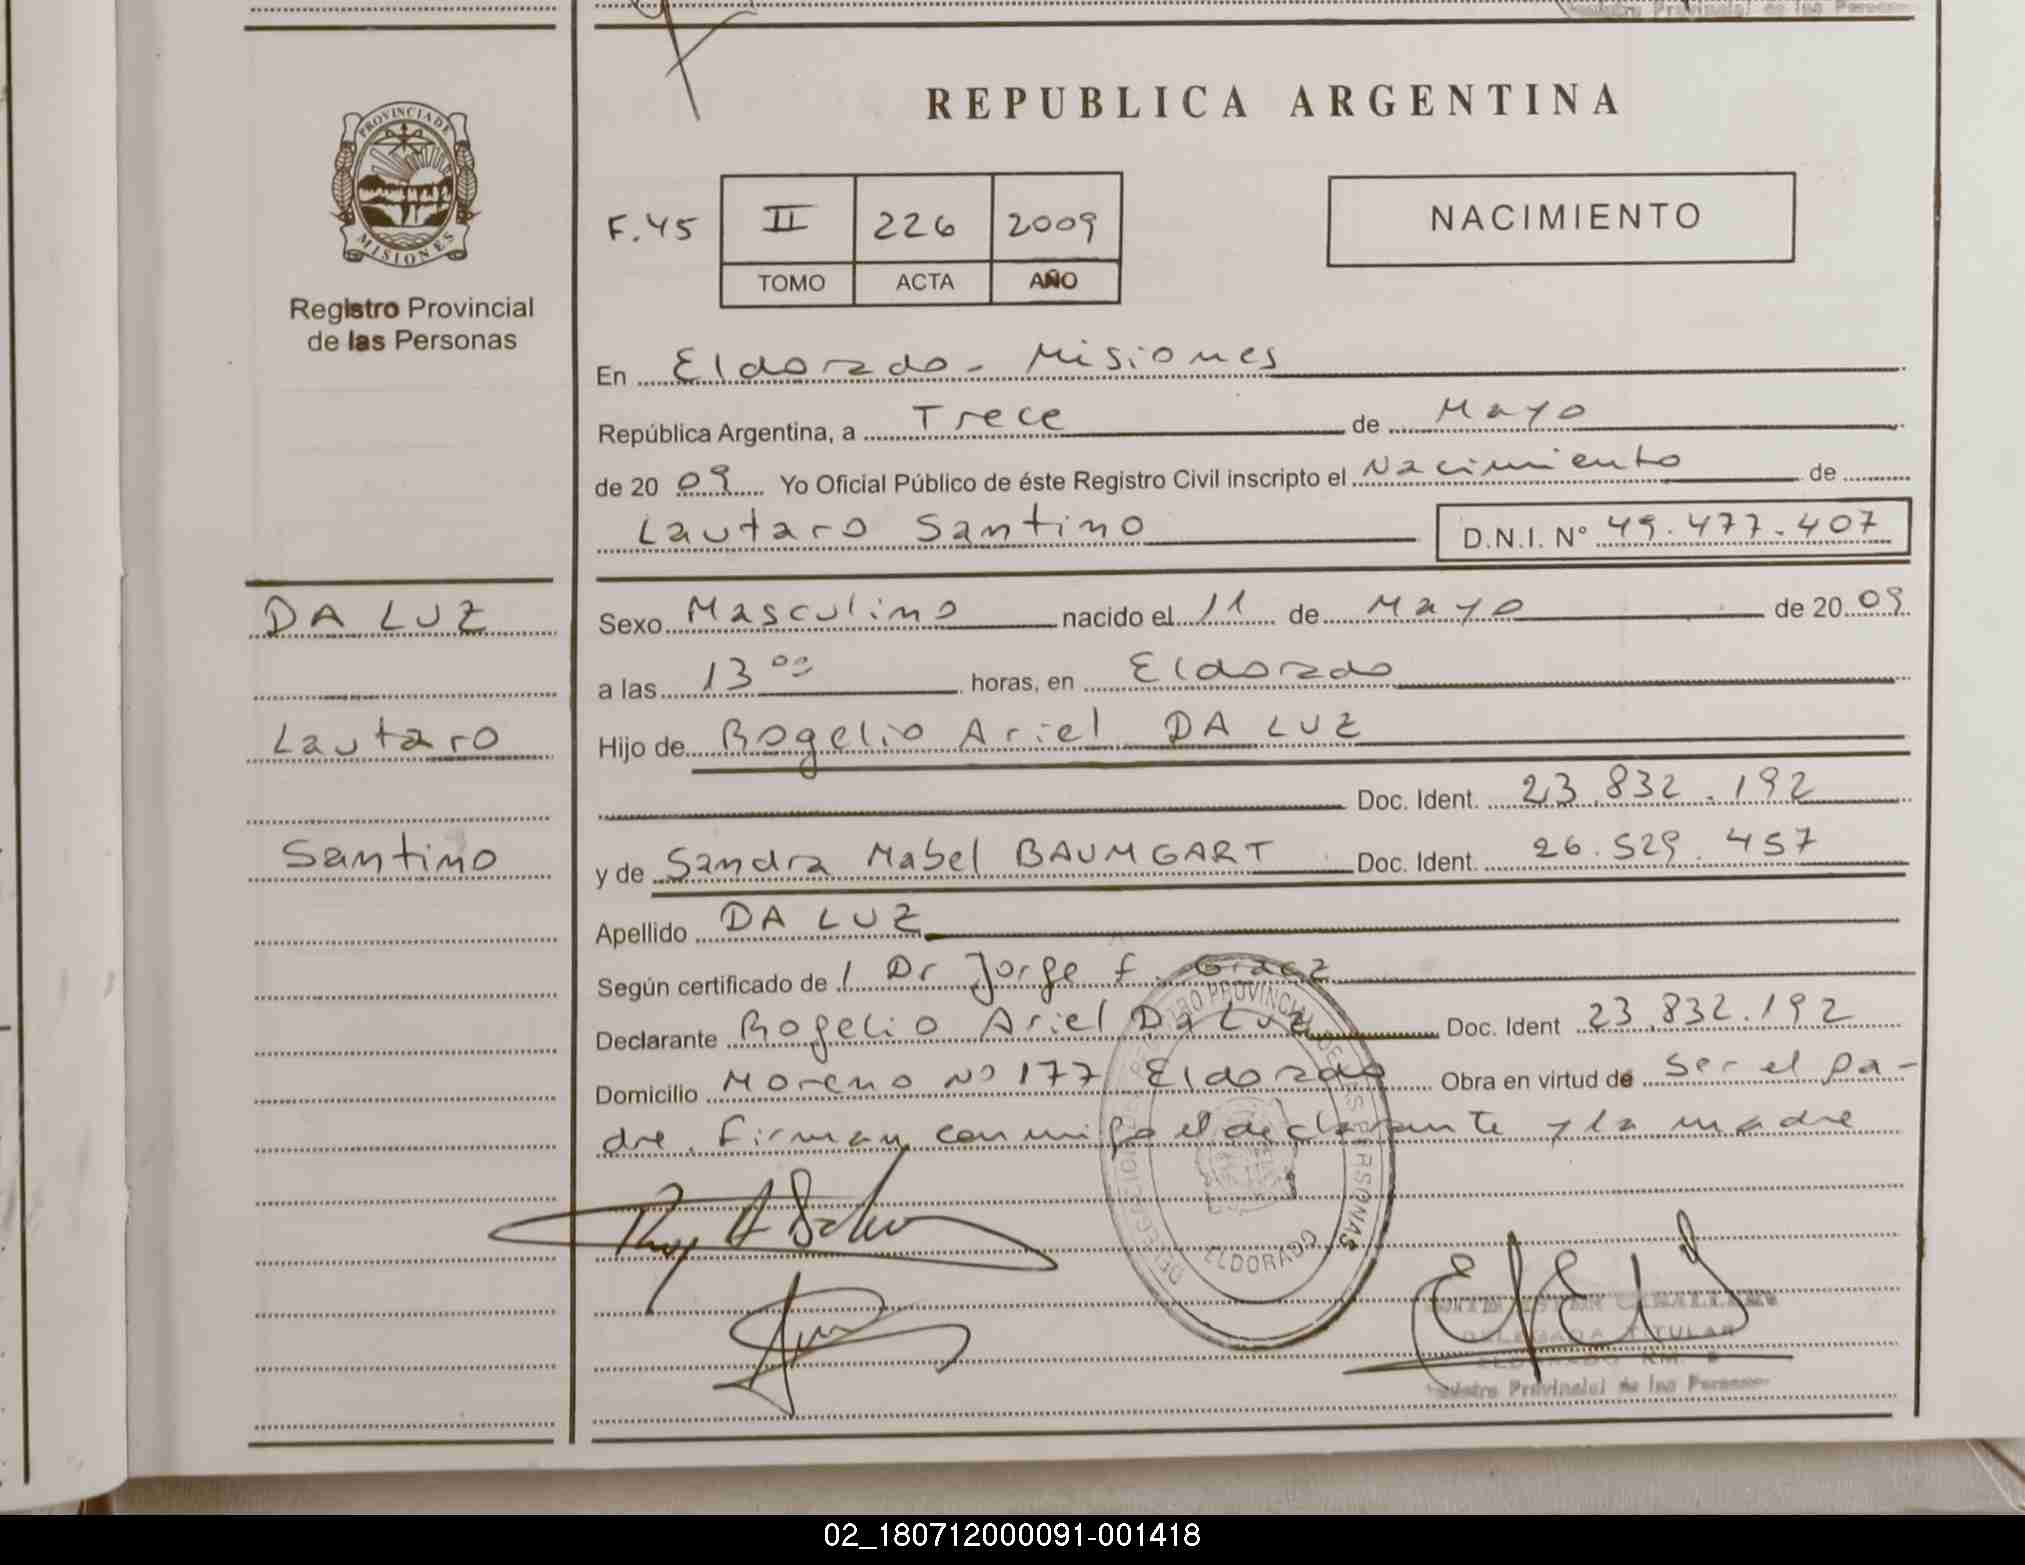 REPUBLICA ARGENTINA
PROVINCIA DE
MISIONES
Registro Provincial
de las Personas
F.45 II 226 2009
TOMO ACTA AÑO
NACIMIENTO
En Eldorado - Misiones
República Argentina, a Trece de Mayo
de 20 09 Yo Oficial Público de éste Registro Civil inscripto el Nacimiento de
Lautaro Santino D.N.I. N° 49.477.407
DA LUZ
Lautaro
Santino
Sexo Masculino nacido el 11 de Mayo de 20 09
a las 13 00 horas, en Eldorado
Hijo de Rogelio Ariel DA LUZ
Doc. Ident. 23.832.192
y de Sandra Mabel BAUMGART Doc. Ident. 26.529.457
Apellido DA LUZ
Según certificado de Dr Jorge F.
Declarante Rogelio Ariel Da Luz Doc. Ident 23.832.192
Domicilio Moreno N° 177 Eldorado Obra en virtud de ser el pa-
dre. Firman conmigo el declarante y la madre
ELDORADO
DELEGADA TITULAR
ELDORADO KM.
Registro Provincial de las Personas
02_180712000091-001418